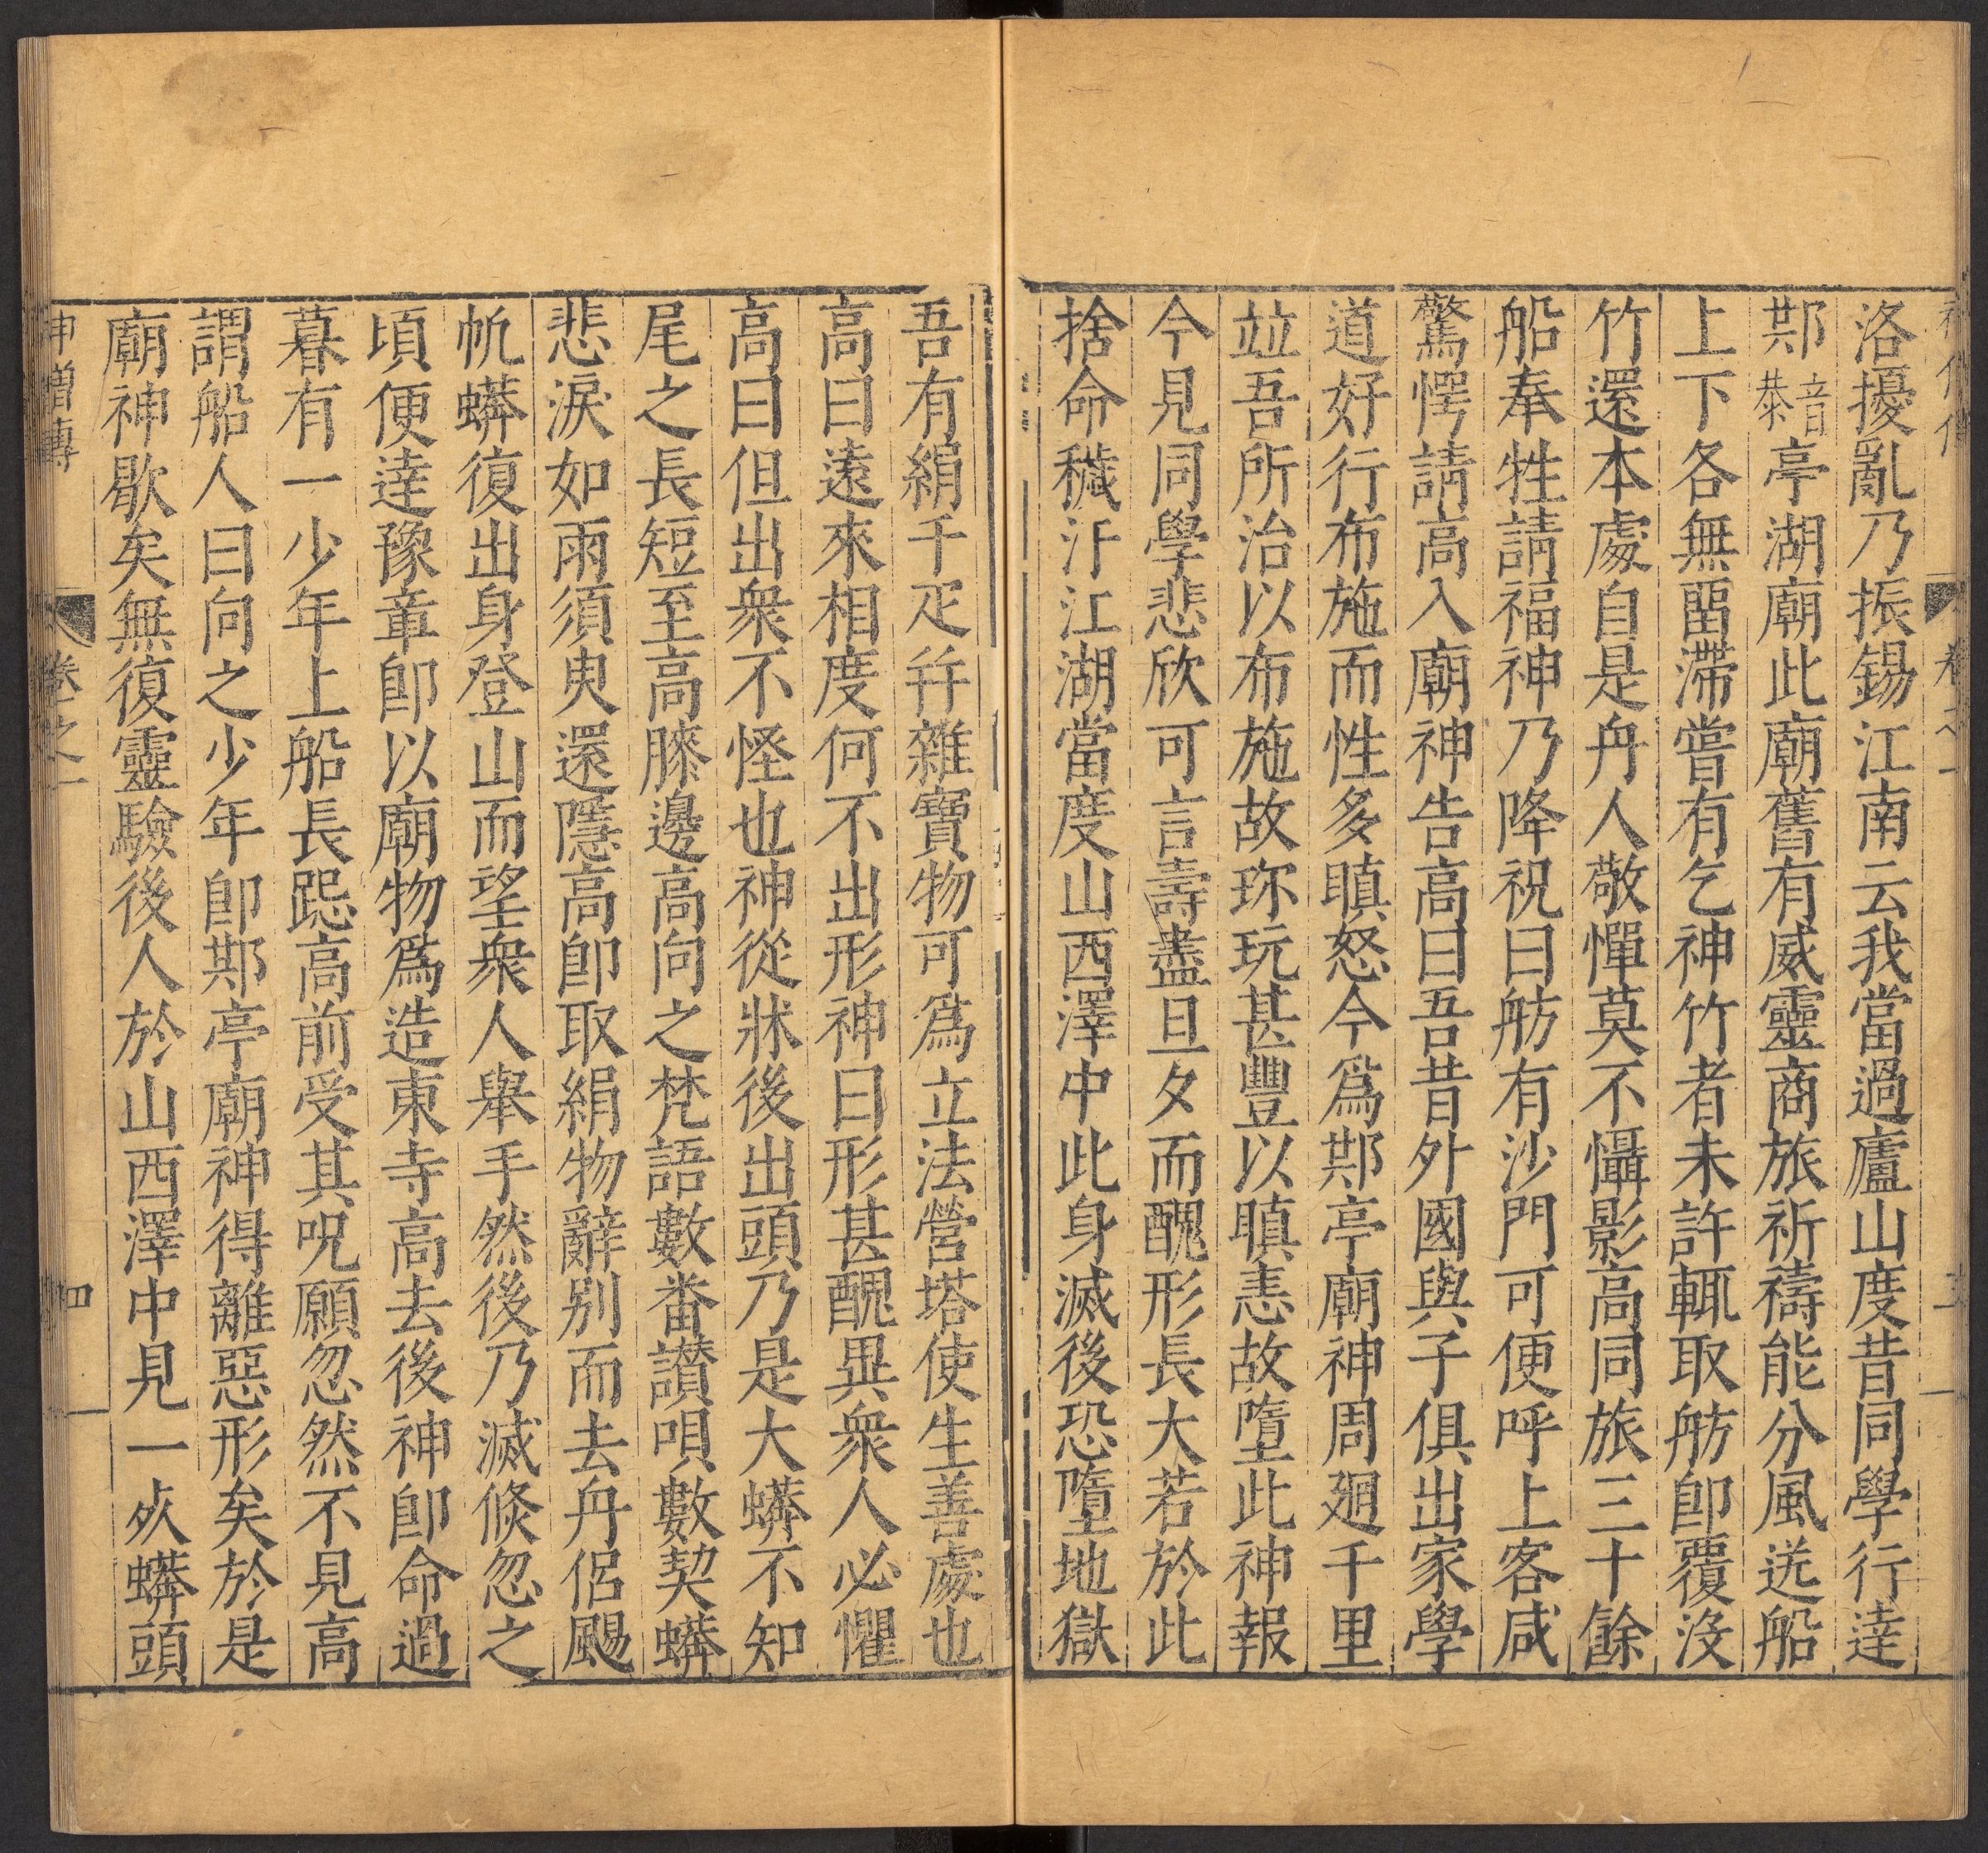 洛擾亂乃振錫江南云我當過廬山度昔同學行達
䢼音恭亭湖廟此廟舊有威靈商旅祈禱能分風送船
上下各無畱滯嘗有乞神竹者未許輒取舫卽覆沒
竹還本處自是舟人敬憚莫不懾影高同旅三十餘
船奉牲請福神乃降祝曰舫有沙門可便呼上客咸
驚愕請高入廟神告高曰吾昔外國與子俱出家學
道好行布施而性多瞋怒今爲䢼亭廟神周廻千里
竝吾所治以布施故珎玩甚豐以瞋恚故墮此神報
今見同學悲欣可言壽盡旦夕而醜形長大若於此
捨命穢汙江湖當度山西澤中此身滅後恐墮地獄
吾有絹千疋幷雜寶物可爲立法營塔使生善處也
高曰遠來相度何不出形神曰形甚醜異衆人必懼
高曰但出衆不怪也神從牀後出頭乃是大蟒不知
尾之長短至高膝邊高向之梵語數番讃唄數契蟒
悲淚如雨須臾還隱高卽取絹物辭別而去舟侶颺
帆蟒復出身登山而望衆人舉手然後乃滅倐忽之
頃便達豫章卽以廟物爲造東寺高去後神卽命過
暮有一少年上船長跽高前受其呪願忽然不見高
謂船人曰向之少年卽䢼亭廟神得離惡形矣於是
廟神歇矣無復靈驗後人於山西澤中見一死蟒頭
神僧傳 卷之一 四